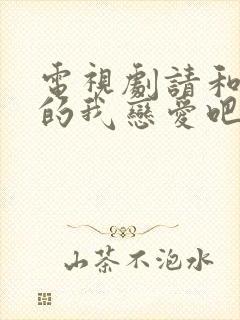 電視劇請和
的我戀愛吧
山茶不泡水